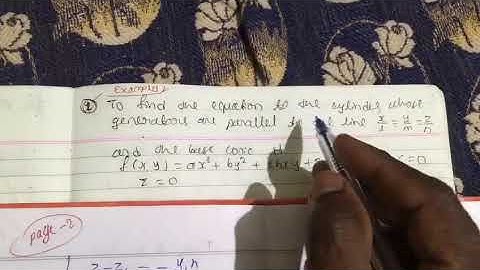 Example
① To find the equation to the cylinder whose
generators are parallel to the line x/l = y/m = z/n
and the base conic
f(x,y) = ax² + by² + 2hxy + 2 = 0
z = 0
page-2
z-z₁ = - y₁n